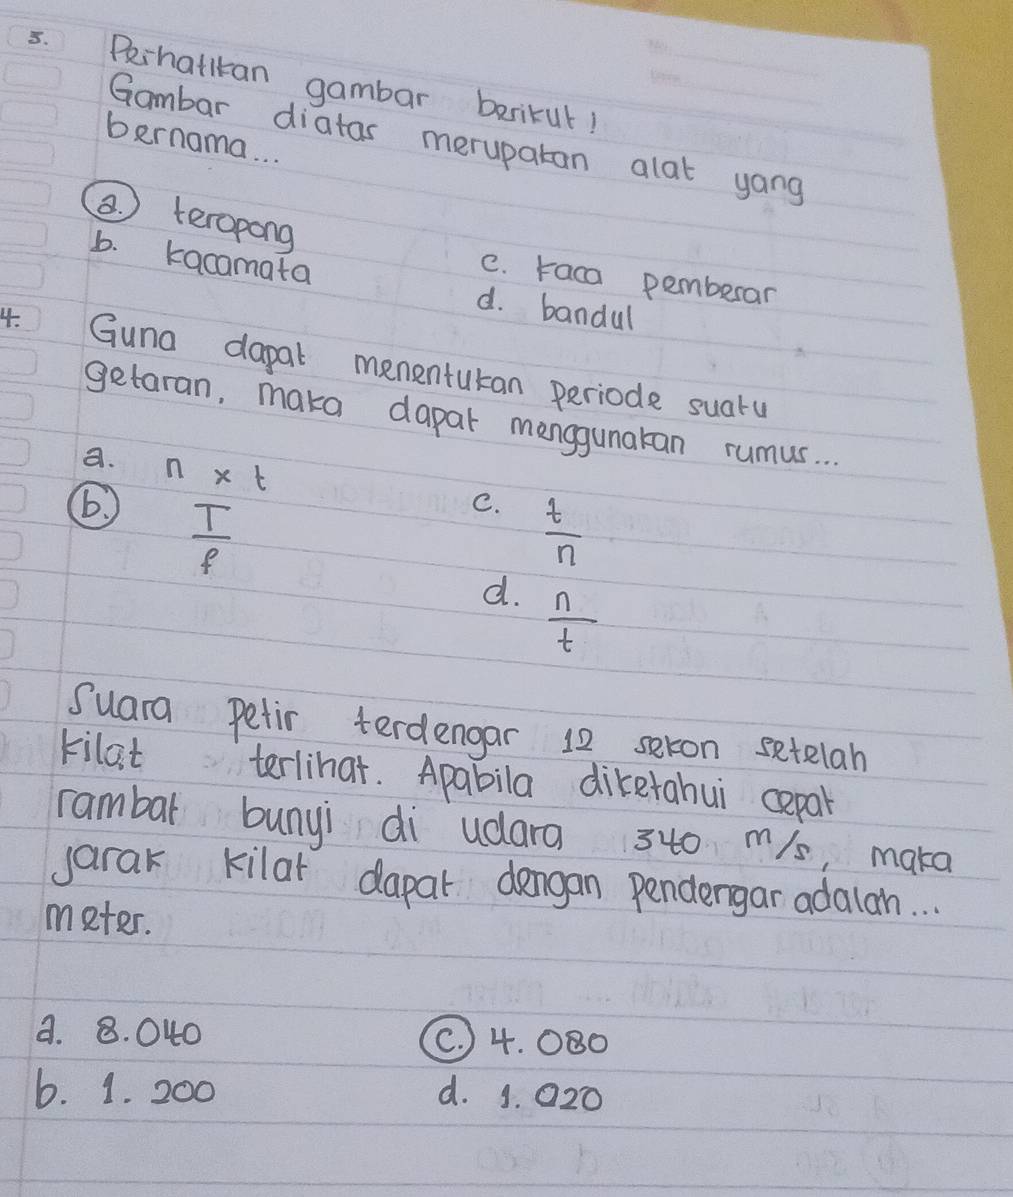 3. Perhatikan gambar berikut!
Gambar diatas merupakan alat yang
bernama...
a. teropong
b. kacamata
c. kaca pembesar
d. bandul
4. Guna dapat menentukan periode suatu
getaran, maka dapat menggunakan rumus...
a. n x t
b. T/f
c. t/n
d. n/t
Suara petir terdengar 12 sekon setelah
kilat terlihat. Apabila diketahui cepat
rambat bunyi di udara 340 m/s, maka
jarak kilat dapat dengan pendengar adalah...
meter.
a. 8.040
c. 4.080
b. 1.200
d. 1.020